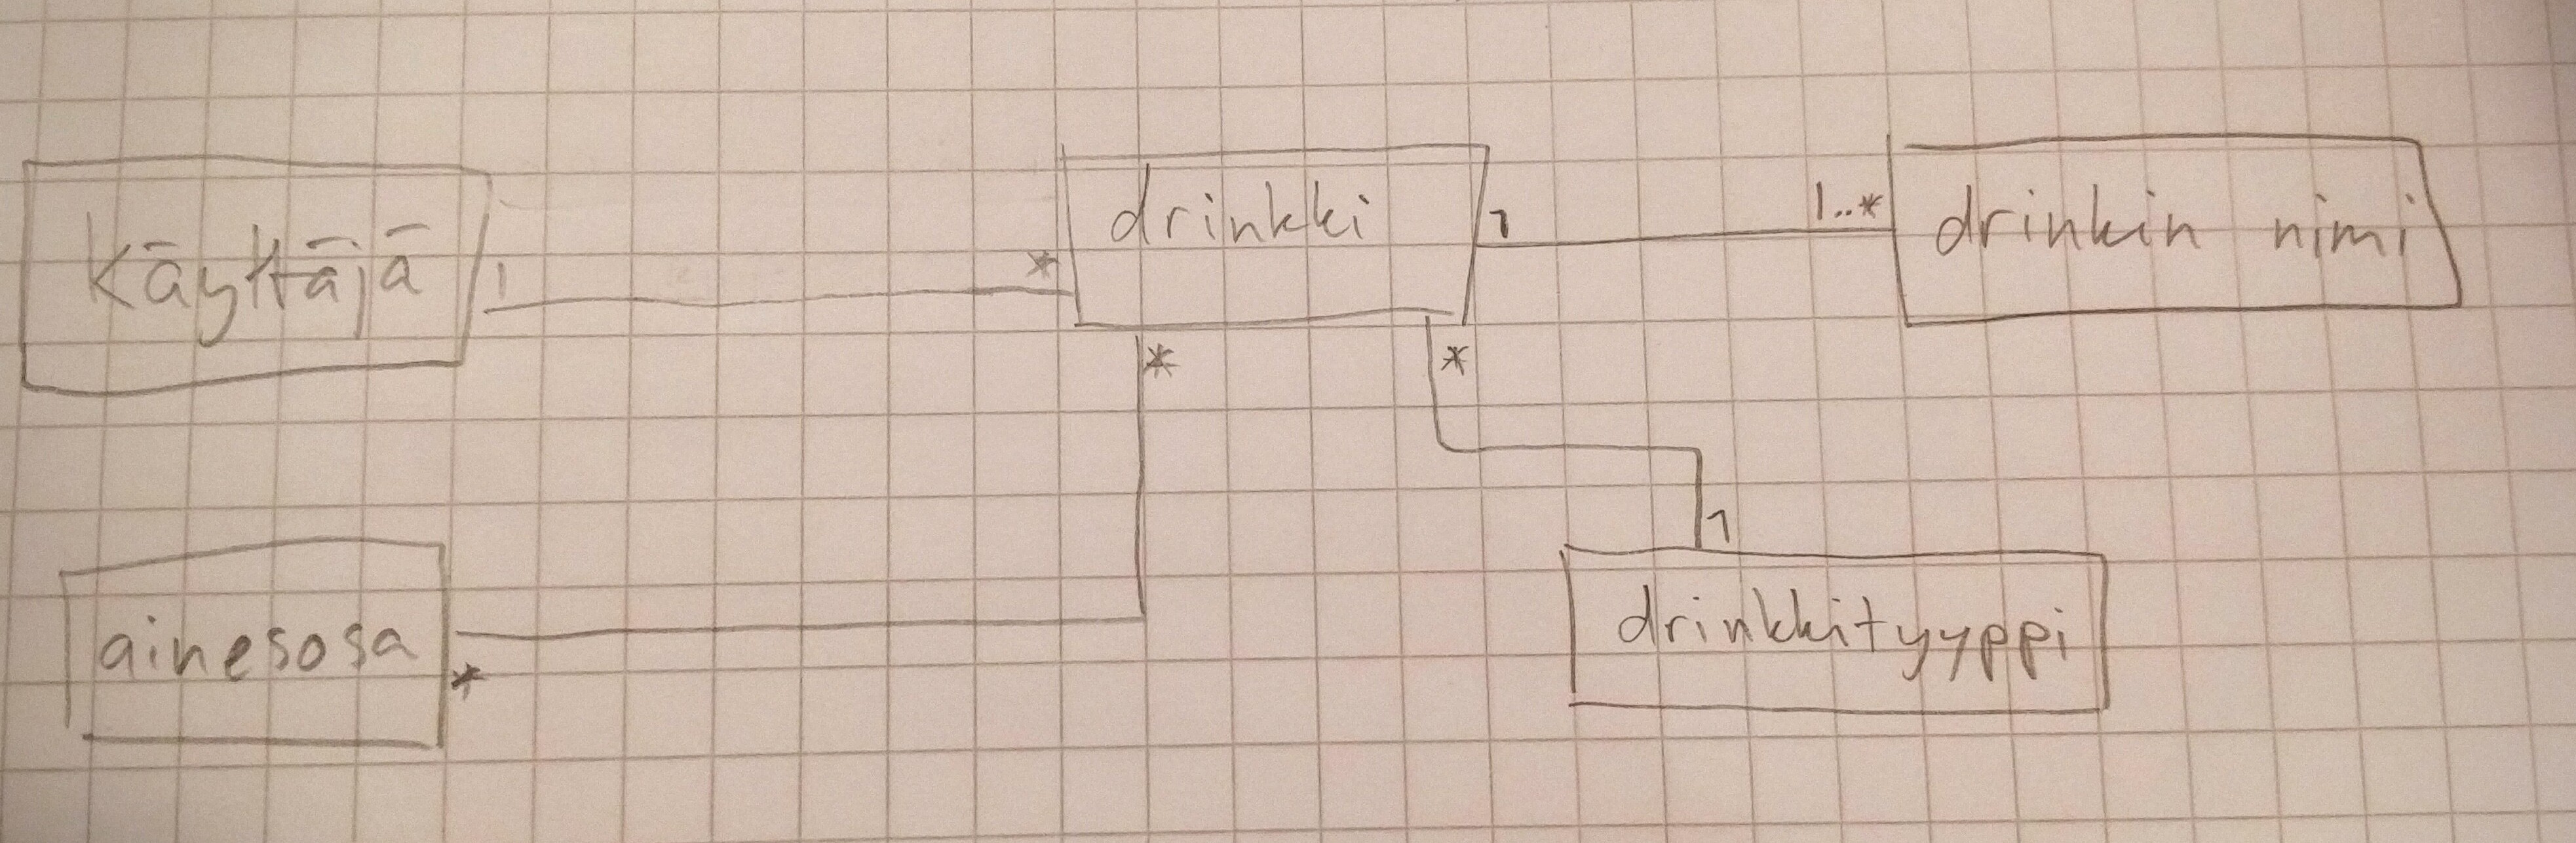 Käyttäjä
1
*
drinkki
1
1..*
drinkin nimi
*
*
1
ainesosa
*
drinkkityyppi